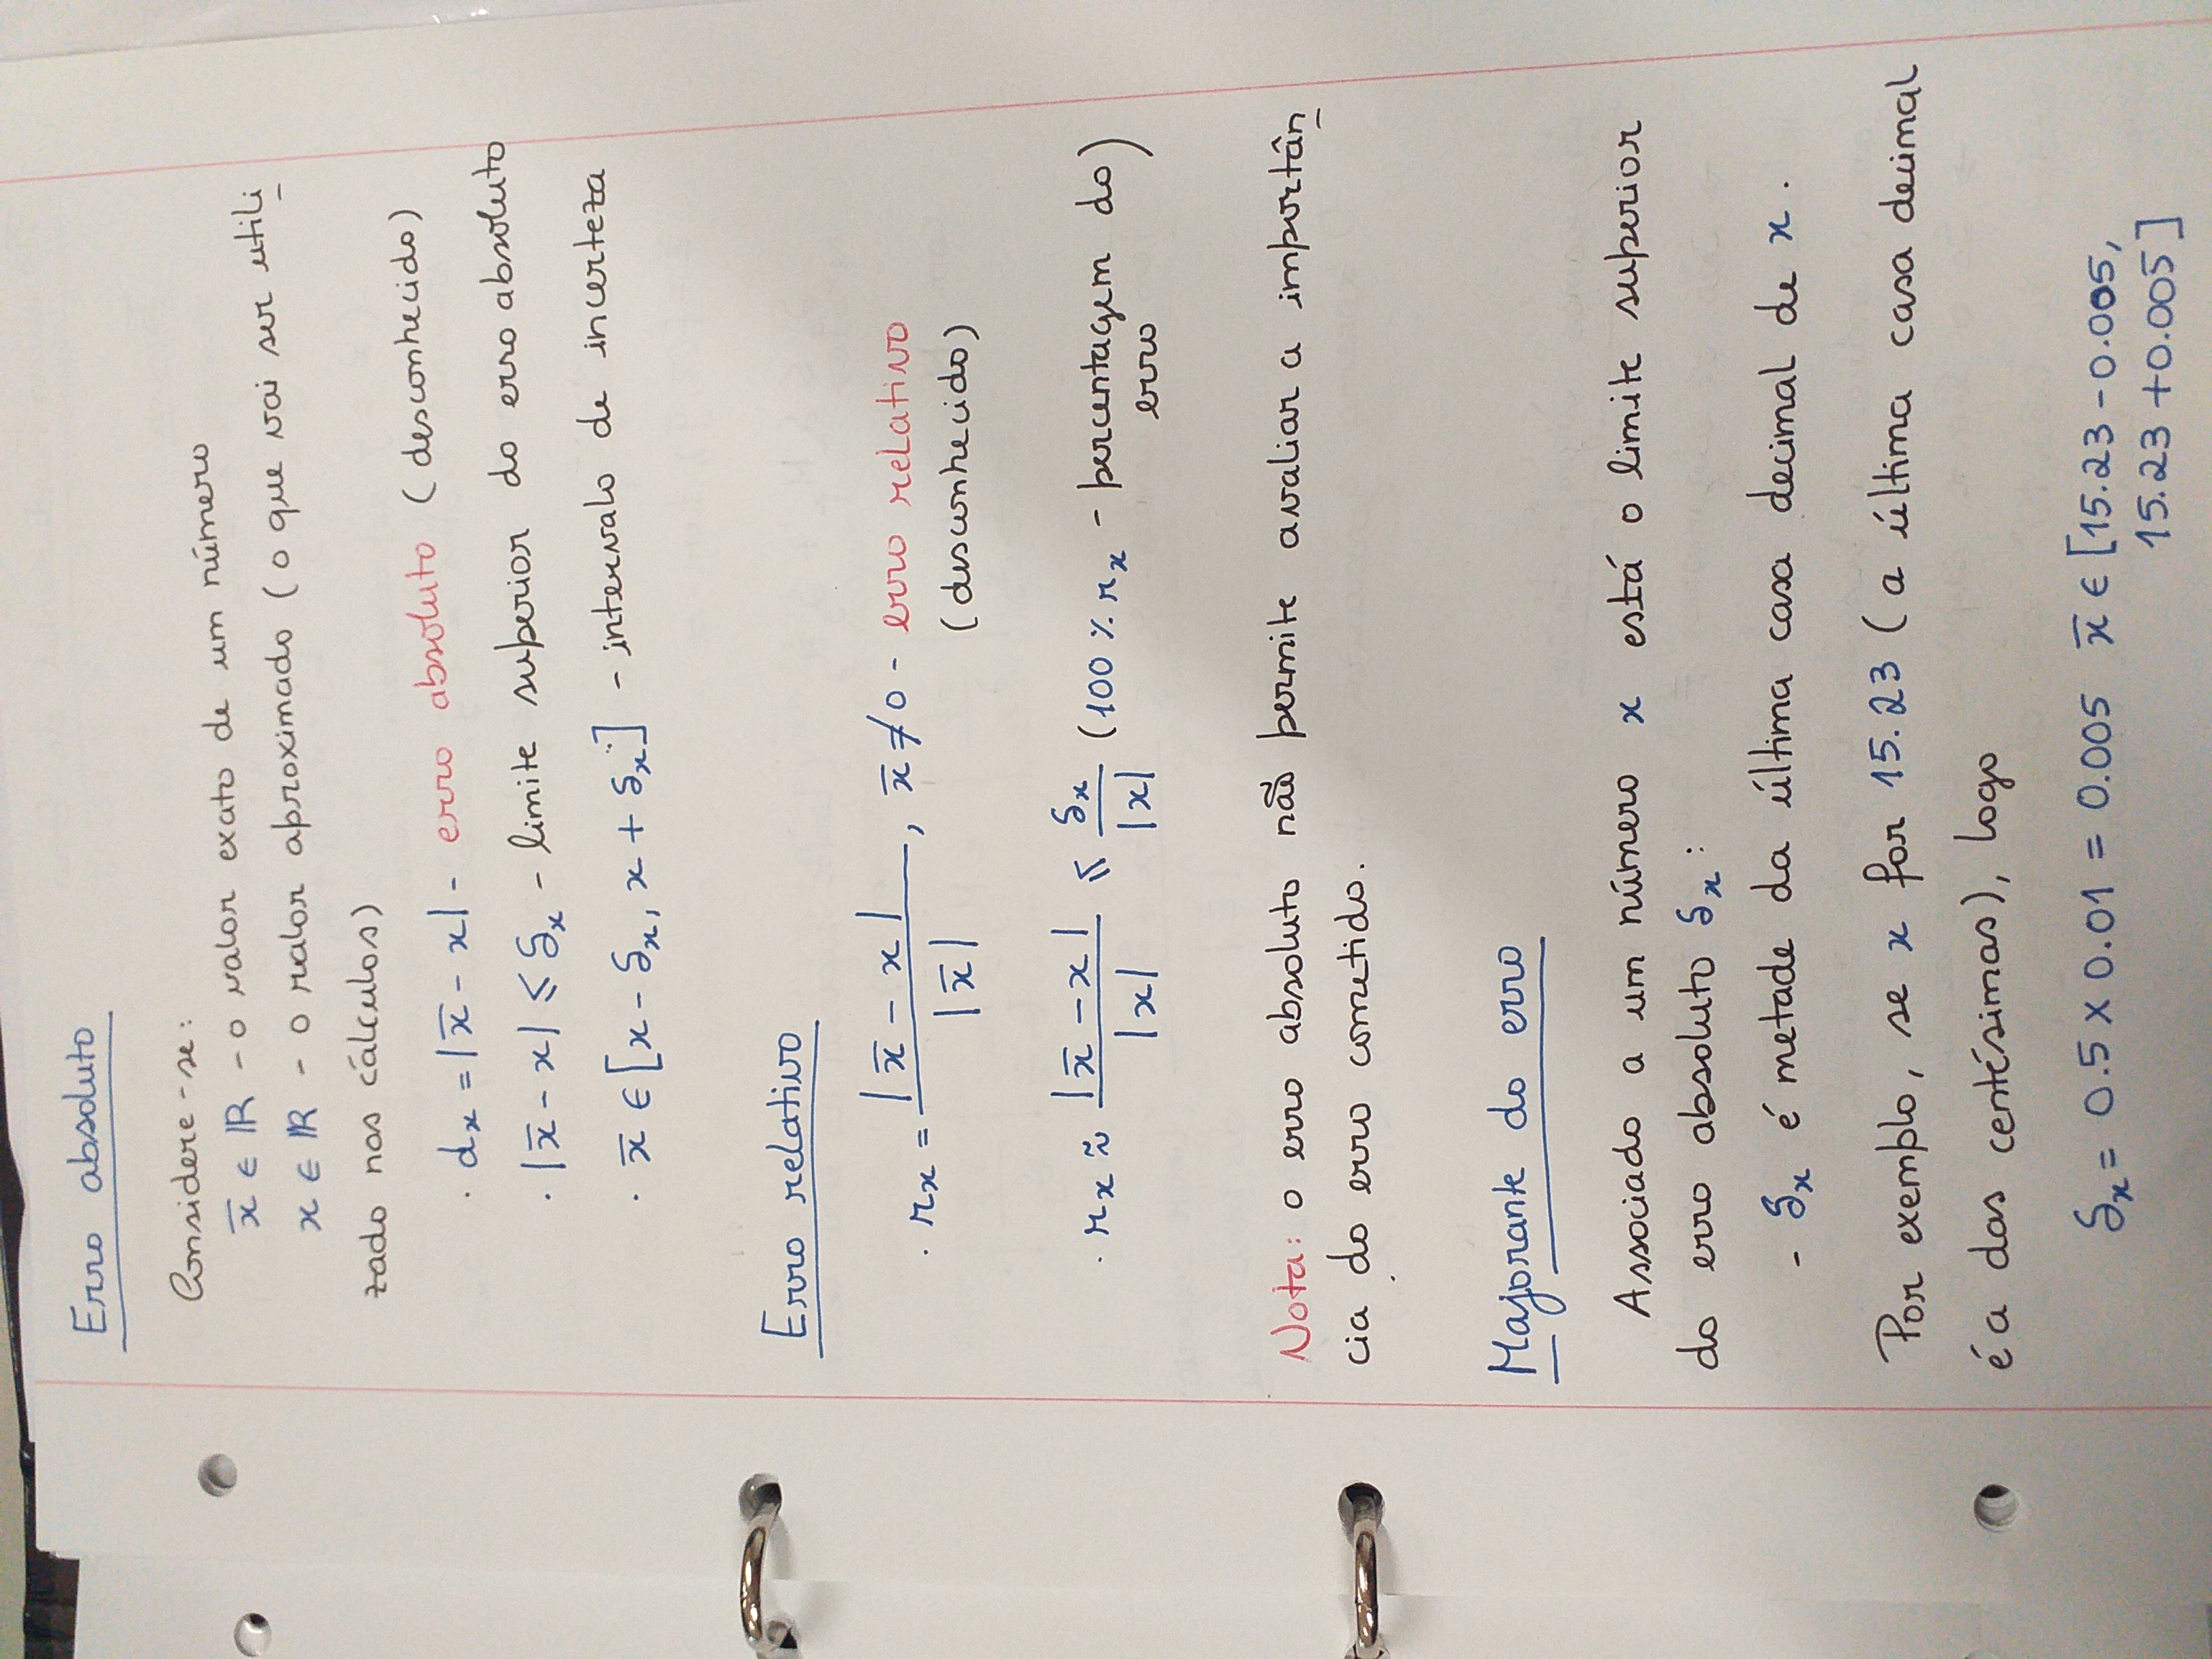 Erro absoluto
Considere-se:
x̄ ∈ ℝ - o valor exato de um número
x ∈ ℝ - o valor aproximado (o que vai ser utili
zado nos cálculos)
· dₓ = |x̄ - x| - erro absoluto (desconhecido)
· |x̄ - x| ≤ δₓ - limite superior do erro absoluto
· x̄ ∈ [x - δₓ, x + δₓ] - intervalo de incerteza
Erro relativo
· rₓ = |x̄ - x| / |x̄|, x̄ ≠ 0 - erro relativo
(desconhecido)
· rₓ ≈ |x̄ - x| / |x| ≤ δₓ / |x| (100 % rₓ - percentagem do
erro)
Nota: o erro absoluto não permite avaliar a importân
cia do erro cometido.
Majorante do erro
Associado a um número x está o limite superior
do erro absoluto δₓ:
- δₓ é metade da última casa decimal de x.
Por exemplo, se x for 15.23 (a última casa decimal
é a das centésimas), logo
δₓ = 0.5 × 0.01 = 0.005 x̄ ∈ [15.23 - 0.005,
15.23 + 0.005]